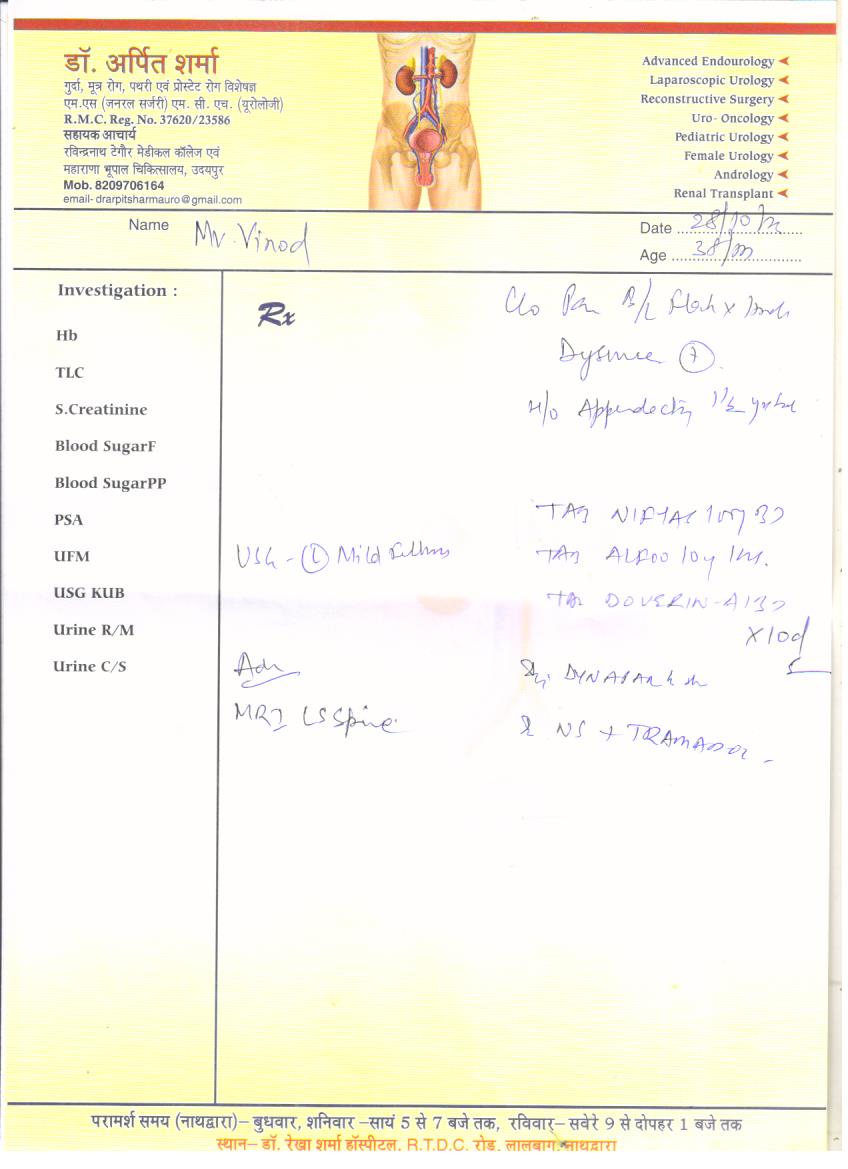 डॉ. अर्पित शर्मा
गुर्दा, मूत्र रोग, पथरी एवं प्रोस्टेट रोग विशेषज्ञ
एम.एस (जनरल सर्जरी) एम. सी. एच. (यूरोलोजी)
R.M.C. Reg. No. 37620/23586
सहायक आचार्य
रविन्द्रनाथ टेगौर मेडीकल कॉलेज एवं
महाराणा भूपाल चिकित्सालय, उदयपुर
Mob. 8209706164
email- drarpitsharmauro@gmail.com
Advanced Endourology
Laparoscopic Urology
Reconstructive Surgery
Uro- Oncology
Pediatric Urology
Female Urology
Andrology
Renal Transplant
Name Mr. Vinod
Date 28/10/
Age 38/m
Investigation :
Hb
TLC
S.Creatinine
Blood SugarF
Blood SugarPP
PSA
UFM
USG KUB
Urine R/M
Urine C/S
Rx
C/o Pain B/L Flank x
Dysuria +
H/o Appendectomy
USG - L Mild
TAB
TAB ALFOO 10mg
TAB DOVERIN-A
x10d
Adv
MRI LS Spine
DYNAPAR
NS + TRAMADOL
परामर्श समय (नाथद्वारा)– बुधवार, शनिवार –सायं 5 से 7 बजे तक, रविवार– सवेरे 9 से दोपहर 1 बजे तक
स्थान– डॉ. रेखा शर्मा हॉस्पीटल, R.T.D.C. रोड, लालबाग, नाथद्वारा